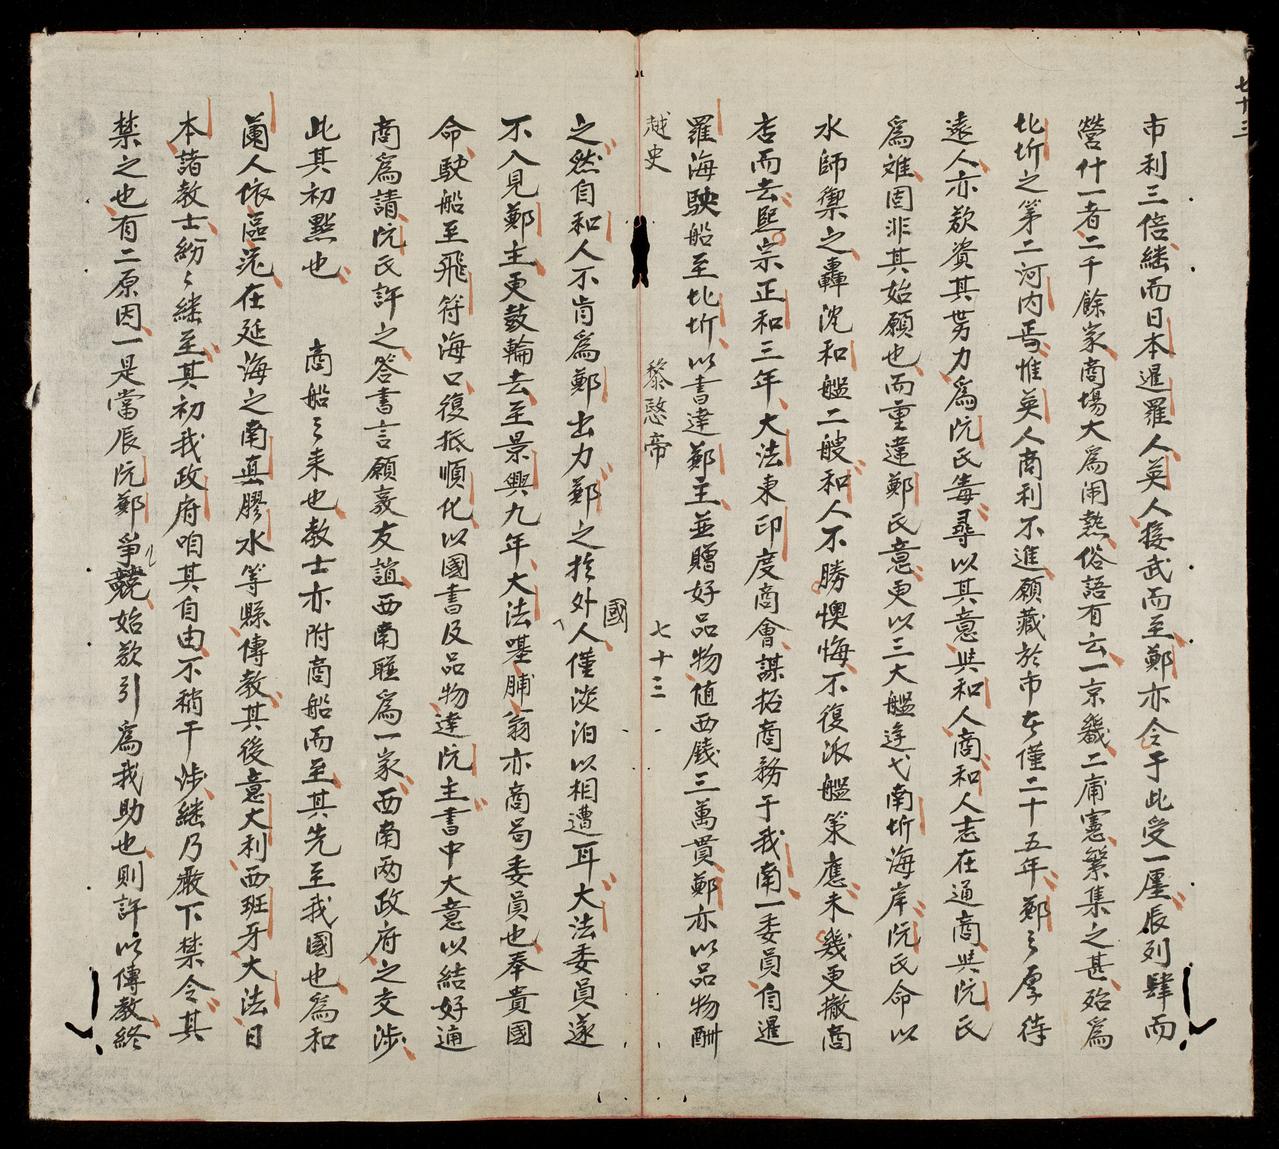 七十三
市利三倍継而日本暹羅人英人接武而至鄭亦令于此受一廛辰列肆而
營什一者二千餘家商場大為闹熱俗語有云一京畿二庯憲繁集之甚殆為
北圻之第二河内焉惟英人商利不進願藏於市才僅二十五年鄭之厚待
遠人亦欲資其势力為阮氏毒尋以其意與和人商和人志在通商與阮氏
為难固非其始願也而重違鄭氏意更以三大艦逹弋南圻海岸阮氏命以
水師禦之轟沈和艦二艘和人不勝懊悔不復派艦策應未幾更撤商
店而去熙宗正和三年大法東印度商會謀拓商務于我南一委員自暹
羅海駛船至北圻以書達鄭主並贈好品物值西錢三萬貫鄭亦以品物酬
越史　黎愍帝　七十三
之然自和人不肯為鄭出力鄭之於外國人僅淡泊以相遭耳大法委員遂
不入見鄭主更鼓輪去至景興九年大法嗤脯翁亦商局委員也奉貴國
命駛船至飛符海口復抵順化以國書及品物達阮主書中大意以結好通
商為請阮氏許之答書言願敦友誼西南睚為一家西南两政府之交涉
此其初點也　商船之来也教士亦附商船而至其先至我國也為和
蘭人依區沉在延海之南真膠水等縣傳教其後意大利西班牙大法日
本諸教士紛〻継至其初我政府咱其自由不稍干涉継乃嚴下禁令其
禁之也有二原因一是當辰阮鄭爭競始欲引為我助也則許以傳教終